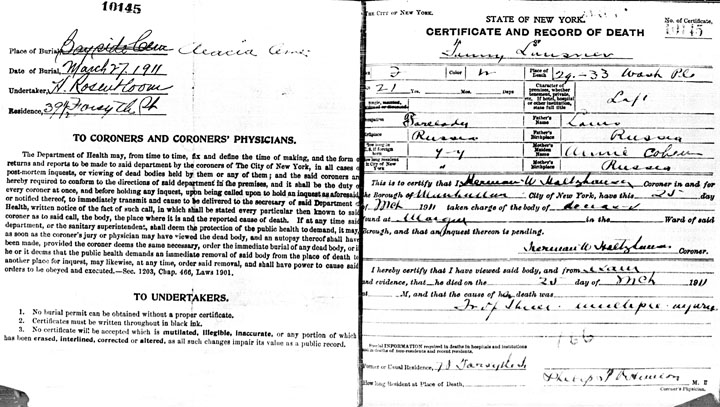 10145
Place of Burial, Bayside Cem Acacia Cem
Date of Burial, March 27, 1911
Undertaker, H. Rosenbloom
Residence, 39 1/2 Forsyth St
TO CORONERS AND CORONERS' PHYSICIANS.
The Department of Health may, from time to time, fix and define the time of making, and the form of
returns and reports to be made to said department by the coroners of The City of New York, in all cases of
post-mortem inquests, or viewing of dead bodies held by them or any of them; and the said coroners are
hereby required to conform to the directions of said department in the premises, and it shall be the duty of
every coroner at once, and before holding any inquest, upon being called upon to hold an inquest as aforesaid,
or notified thereof, to immediately transmit and cause to be delivered to the secretary of said Department of
Health, written notice of the fact of such call, in which shall be stated every particular then known to said
coroner as to said call, the body, the place where it is and the reported cause of death. If at any time said
department, or the sanitary superintendent, shall deem the protection of the public health to demand, it may,
as soon as the coroner's jury or physician may have viewed the dead body, and an autopsy thereof shall have
been made, provided the coroner deems the same necessary, order the immediate burial of any dead body, or if
he or it deems that the public health demands an immediate removal of said body from the place of death to
another place for inquest, may likewise, at any time, order said removal, and shall have power to cause said
orders to be obeyed and executed.—Sec. 1203, Chap. 466, Laws 1901.
TO UNDERTAKERS.
1. No burial permit can be obtained without a proper certificate.
2. Certificates must be written throughout in black ink.
3. No certificate will be accepted which is mutilated, illegible, inaccurate, or any portion of which
has been erased, interlined, corrected or altered, as all such changes impair its value as a public record.
THE CITY OF NEW YORK.
STATE OF NEW YORK.
No. of Certificate,
CERTIFICATE AND RECORD OF DEATH
10145
Fanny Lansner
F Color W Place of Death 29-33 Wash Pl
21 Yrs. Mos. Days
Character of premises, whether tenement, private, etc. If hotel, hospital or other institution, state full title Loft
Single, married,
Forelady Father's Name Louis
Russia Father's Birthplace Russia
Mother's Maiden Name Annie Cohen
Mother's Birthplace Russia
This is to certify that I, Herman W. Holtzhauser Coroner in and for
the Borough of Manhattan City of New York, have this 25 day
of Mch 1911 taken charge of the body of deceased
found at Morgue in the Ward of said
Borough, and that an inquest thereon is pending.
Herman W. Holtzhauser Coroner.
I hereby certify that I have viewed said body, and from
and evidence, that he died on the 25 day of Mch 1911
at M, and that the cause of her death was
multiple injuries
Special INFORMATION required in deaths in hospitals and institutions
and in deaths of non-residents and recent residents.
Former or Usual Residence, 78 Forsyth st
How long Resident at Place of Death, M. D.
Coroner's Physician.